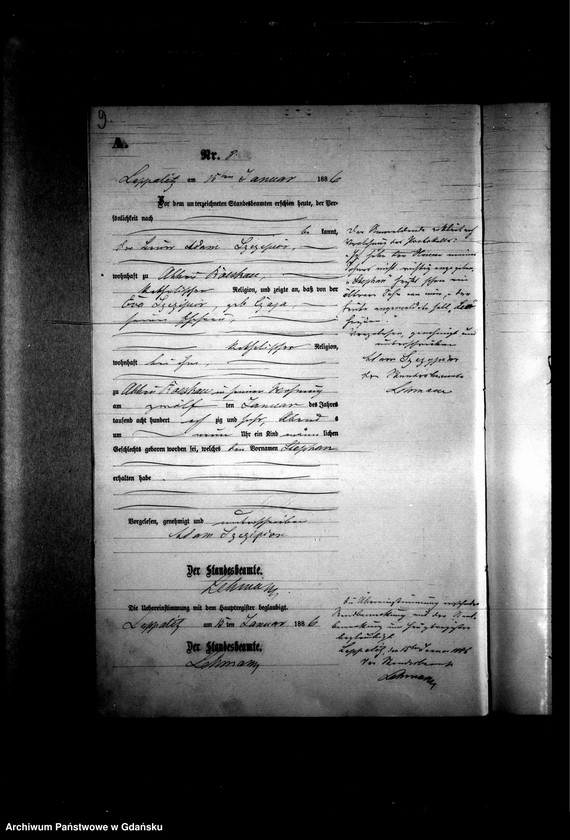 9
A.
Nr. 8
am 15ten Januar 1886
Vor dem unterzeichneten Standesbeamten erschien heute, der Per-
sönlichkeit nach
be kannt,
Adam Szczipior,
wohnhaft zu Alt
katholischer Religion, und zeigte an, daß von der
Eva Szczipior, geb.
seiner Ehefrau,
katholischer Religion,
wohnhaft bei ihm,
zu Alt in seiner Wohnung
am zwölften Januar des Jahres
tausend acht hundert achtzig und sechs, Abends
um neun Uhr ein Kind männlichen
Geschlechts geboren worden sei, welches den Vornamen Stephan
erhalten habe
Vorgelesen, genehmigt und unterschrieben
Adam Szczipior
Der Standesbeamte.
Lehmann
Die Uebereinstimmung mit dem Hauptregister beglaubigt.
am 15ten Januar 1886
Der Standesbeamte.
Lehmann
Der Anmeldende erklärt nach
Vorlesung des Protokolls:
"Ich habe den Namen meines
Sohnes nicht richtig angegeben,
"Stephan" heißt schon ein
älterer Sohn von mir, der
heute angemeldete soll
heißen."
Vorgelesen, genehmigt und
unterschrieben
Adam Szczypior
Der Standesbeamte
Lehmann
Die Übereinstimmung
Randbemerkung mit der Rand-
bemerkung im Hauptregister
beglaubigt.
den 15ten Januar 1886
Der Standesbeamte
Lehmann
Archiwum Państwowe w Gdańsku